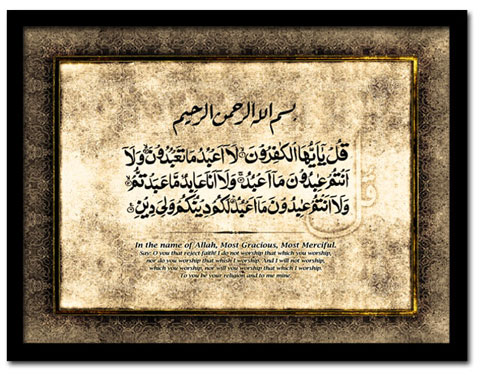 بسم الله الرحمن الرحيم
قُلْ يَا أَيُّهَا الْكَفِرُونَ لَا أَعْبُدُ مَا تَعْبُدُونَ وَلَا
أَنْتُمْ عَبِدُونَ مَا أَعْبُدُ وَلَا أَنَا عَابِدٌ مَّا عَبَدتُّمْ
وَلَا أَنْتُمْ عَبِدُونَ مَا أَعْبُدُ لَكُمْ دِينُكُمْ وَلِىَ دِينِ
In the name of Allah, Most Gracious, Most Merciful.
Say: O you that reject faith! I do not worship that which you worship,
nor do you worship that which I worship. And I will not worship,
which you worship, nor will you worship that which I worship.
To you be your religion and to me mine.